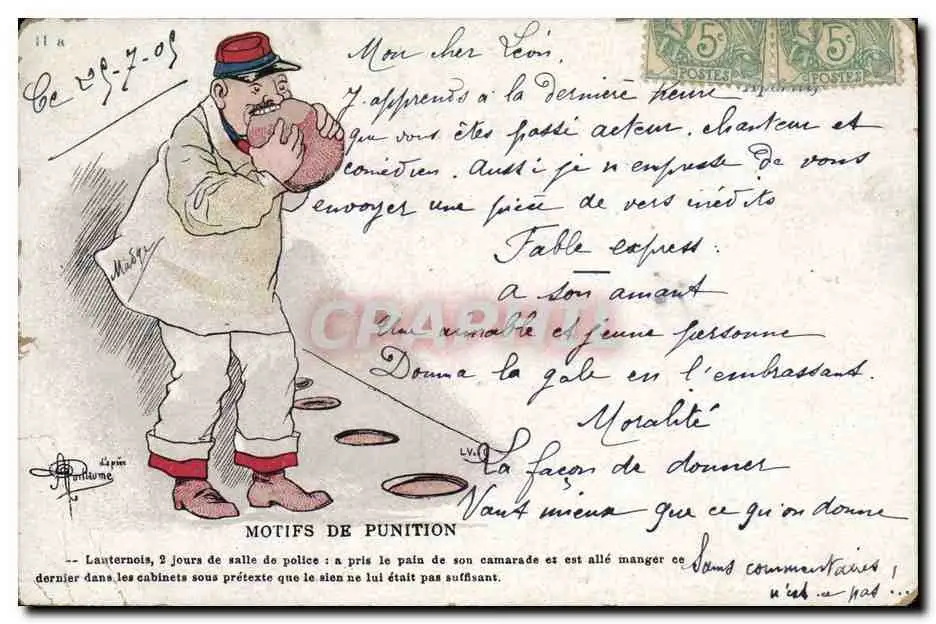 11 a
Ce 25-7-05
5c 5c
POSTES POSTES
Mon cher Léon,
J'apprends à la dernière heure
que vous êtes passé acteur, chanteur et
comédien. Aussi je m'empresse de vous
envoyer une pièce de vers inédits
Fable express.
A son amant
Une aimable et jeune personne
Donna la gale en l'embrassant.
Moralité
La façon de donner
Vaut mieux que ce qu'on donne
Sans commentaires !
n'est-ce pas...
CPAPHIL
d'après
Guillaume
MOTIFS DE PUNITION
-- Lanternois, 2 jours de salle de police : a pris le pain de son camarade es est allé manger ce
dernier dans les cabinets sous prétexte que le sien ne lui était pas suffisant.